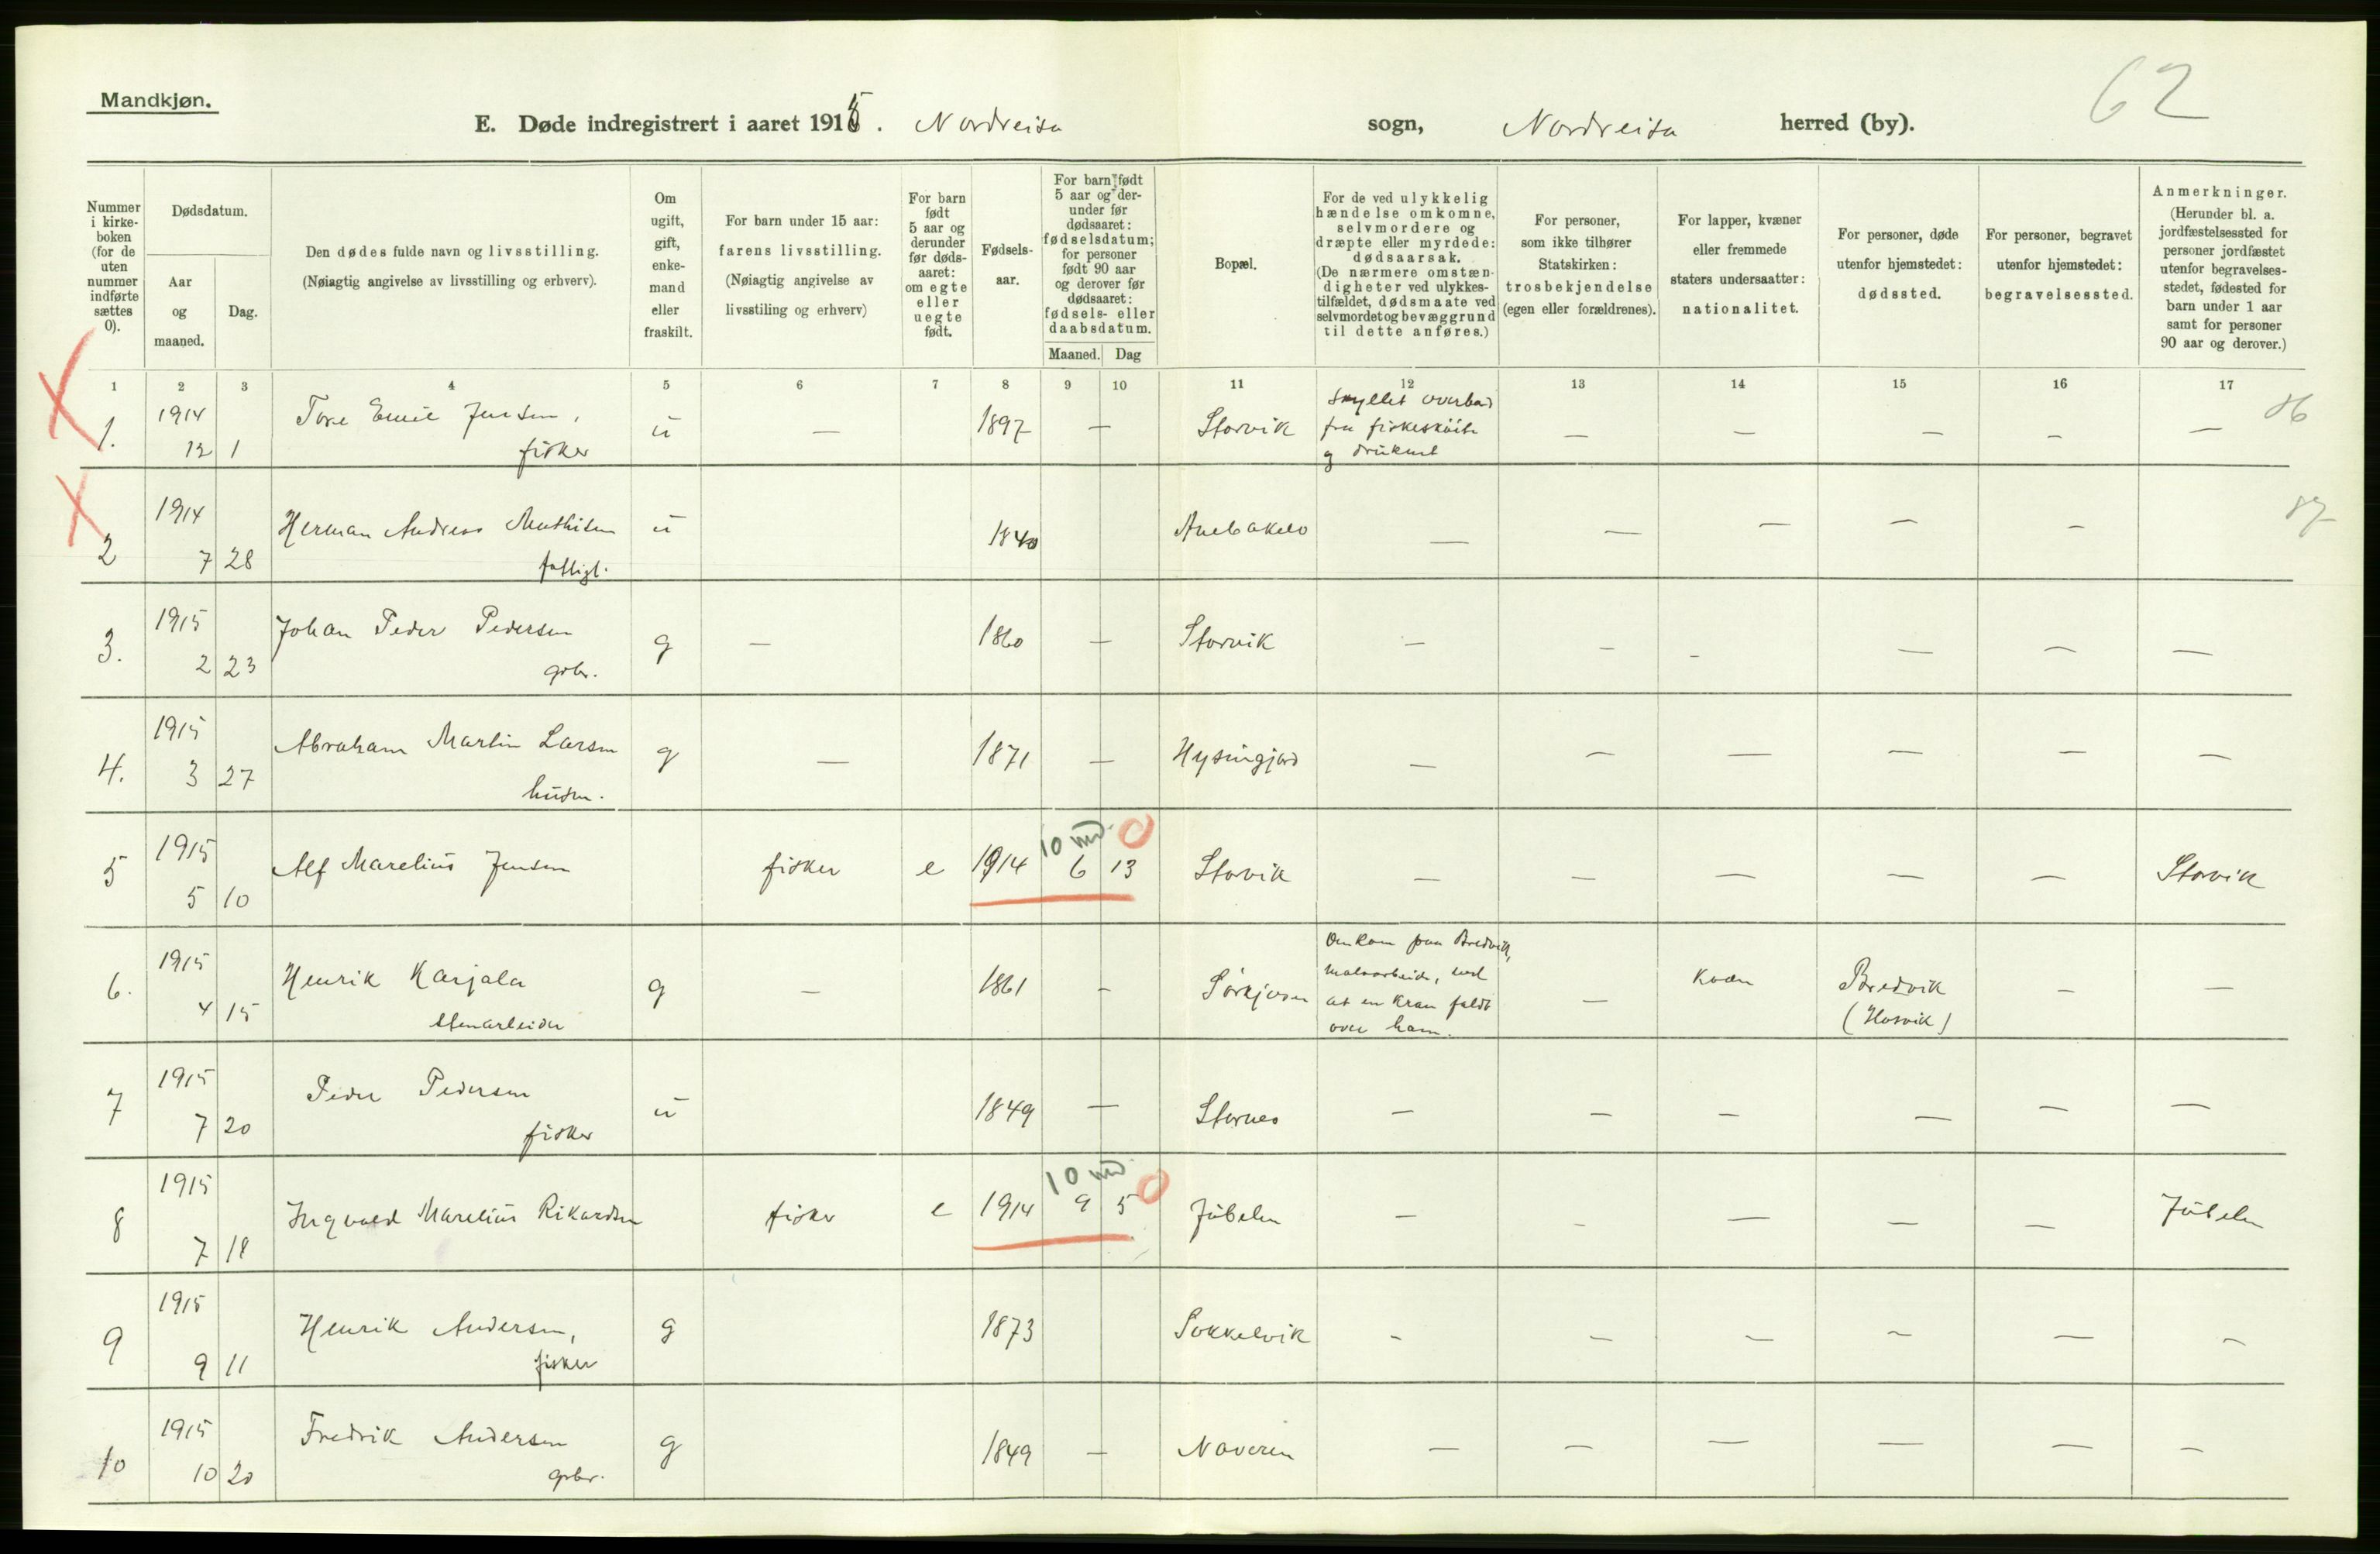 Mandkjøn.
62
E. Døde indregistrert i aaret 1915. Nordreisa sogn, Nordreisa herred (by).
Nummer i kirkeboken (for de uten nummer indførte sættes 0).
Dødsdatum.
Aar og maaned.
Dag.
Den dødes fulde navn og livsstilling.
(Nøiagtig angivelse av livsstilling og erhverv).
Om ugift, gift, enkemand eller fraskilt.
For barn under 15 aar:
farens livsstilling.
(Nøiagtig angivelse av livsstiling og erhverv)
For barn født 5 aar og derunder før dødsaaret: om egte eller uegte født.
Fødselsaar.
For barn født 5 aar og derunder før dødsaaret: fødselsdatum; for personer født 90 aar og derover før dødsaaret: fødsels- eller daabsdatum.
Maaned. Dag
Bopæl.
For de ved ulykkelig hændelse omkomne, selvmordere og dræpte eller myrdede: dødsaarsak. (De nærmere omstændigheter ved ulykkestilfældet, dødsmaate ved selvmordet og bevæggrund til dette anføres.)
For personer, som ikke tilhører Statskirken: trosbekjendelse (egen eller forældrenes).
For lapper, kvæner eller fremmede staters undersaatter: nationalitet.
For personer, døde utenfor hjemstedet: dødssted.
For personer, begravet utenfor hjemstedet: begravelsessted.
Anmerkninger.
(Herunder bl. a. jordfæstelsessted for personer jordfæstet utenfor begravelsesstedet, fødested for barn under 1 aar samt for personer 90 aar og derover.)
1 2 3 4 5 6 7 8 9 10 11 12 13 14 15 16 17
1. 1914 12 1 Tore Emil Jensen, fisker u — 1897 — Storvik skyllet overbord fra fiskeskøite og druknet — — — — — 86
2 1914 7 28 Herman Andreas Mathisen fattigl. u 1840 — — — — — 87
3. 1915 2 23 Johan Peder Pedersen gbr. g — 1860 — Storvik — — — — — —
4. 1915 3 27 Abraham Martin Larsen husm. g — 1871 — Hysingjord — — — — — —
5 1915 5 10 Alf Marelius Jensen fisker e 1914 10 md. 6 13 Storvik — — — — — Storvik
6. 1915 4 15 Henrik Karjala g — 1861 — Sørkjosen Omkom paa Bredvik, malmarbeide, ved at en kran faldt over ham. — kvæn Bredvik — —
7 1915 7 20 Peder Pedersen fisker u 1849 — Stornes — — — — — —
8 1915 7 18 Ingvald Marelius Rikardsen fisker e 1914 10 md. 9 5 Jubelen — — — — — Jubelen
9 1915 9 11 Henrik Andersen, fisker g 1873 Sokkelvik — — — — — —
10 1915 10 20 Fredrik Andersen gbr. g 1849 — Naveren — — — — — —